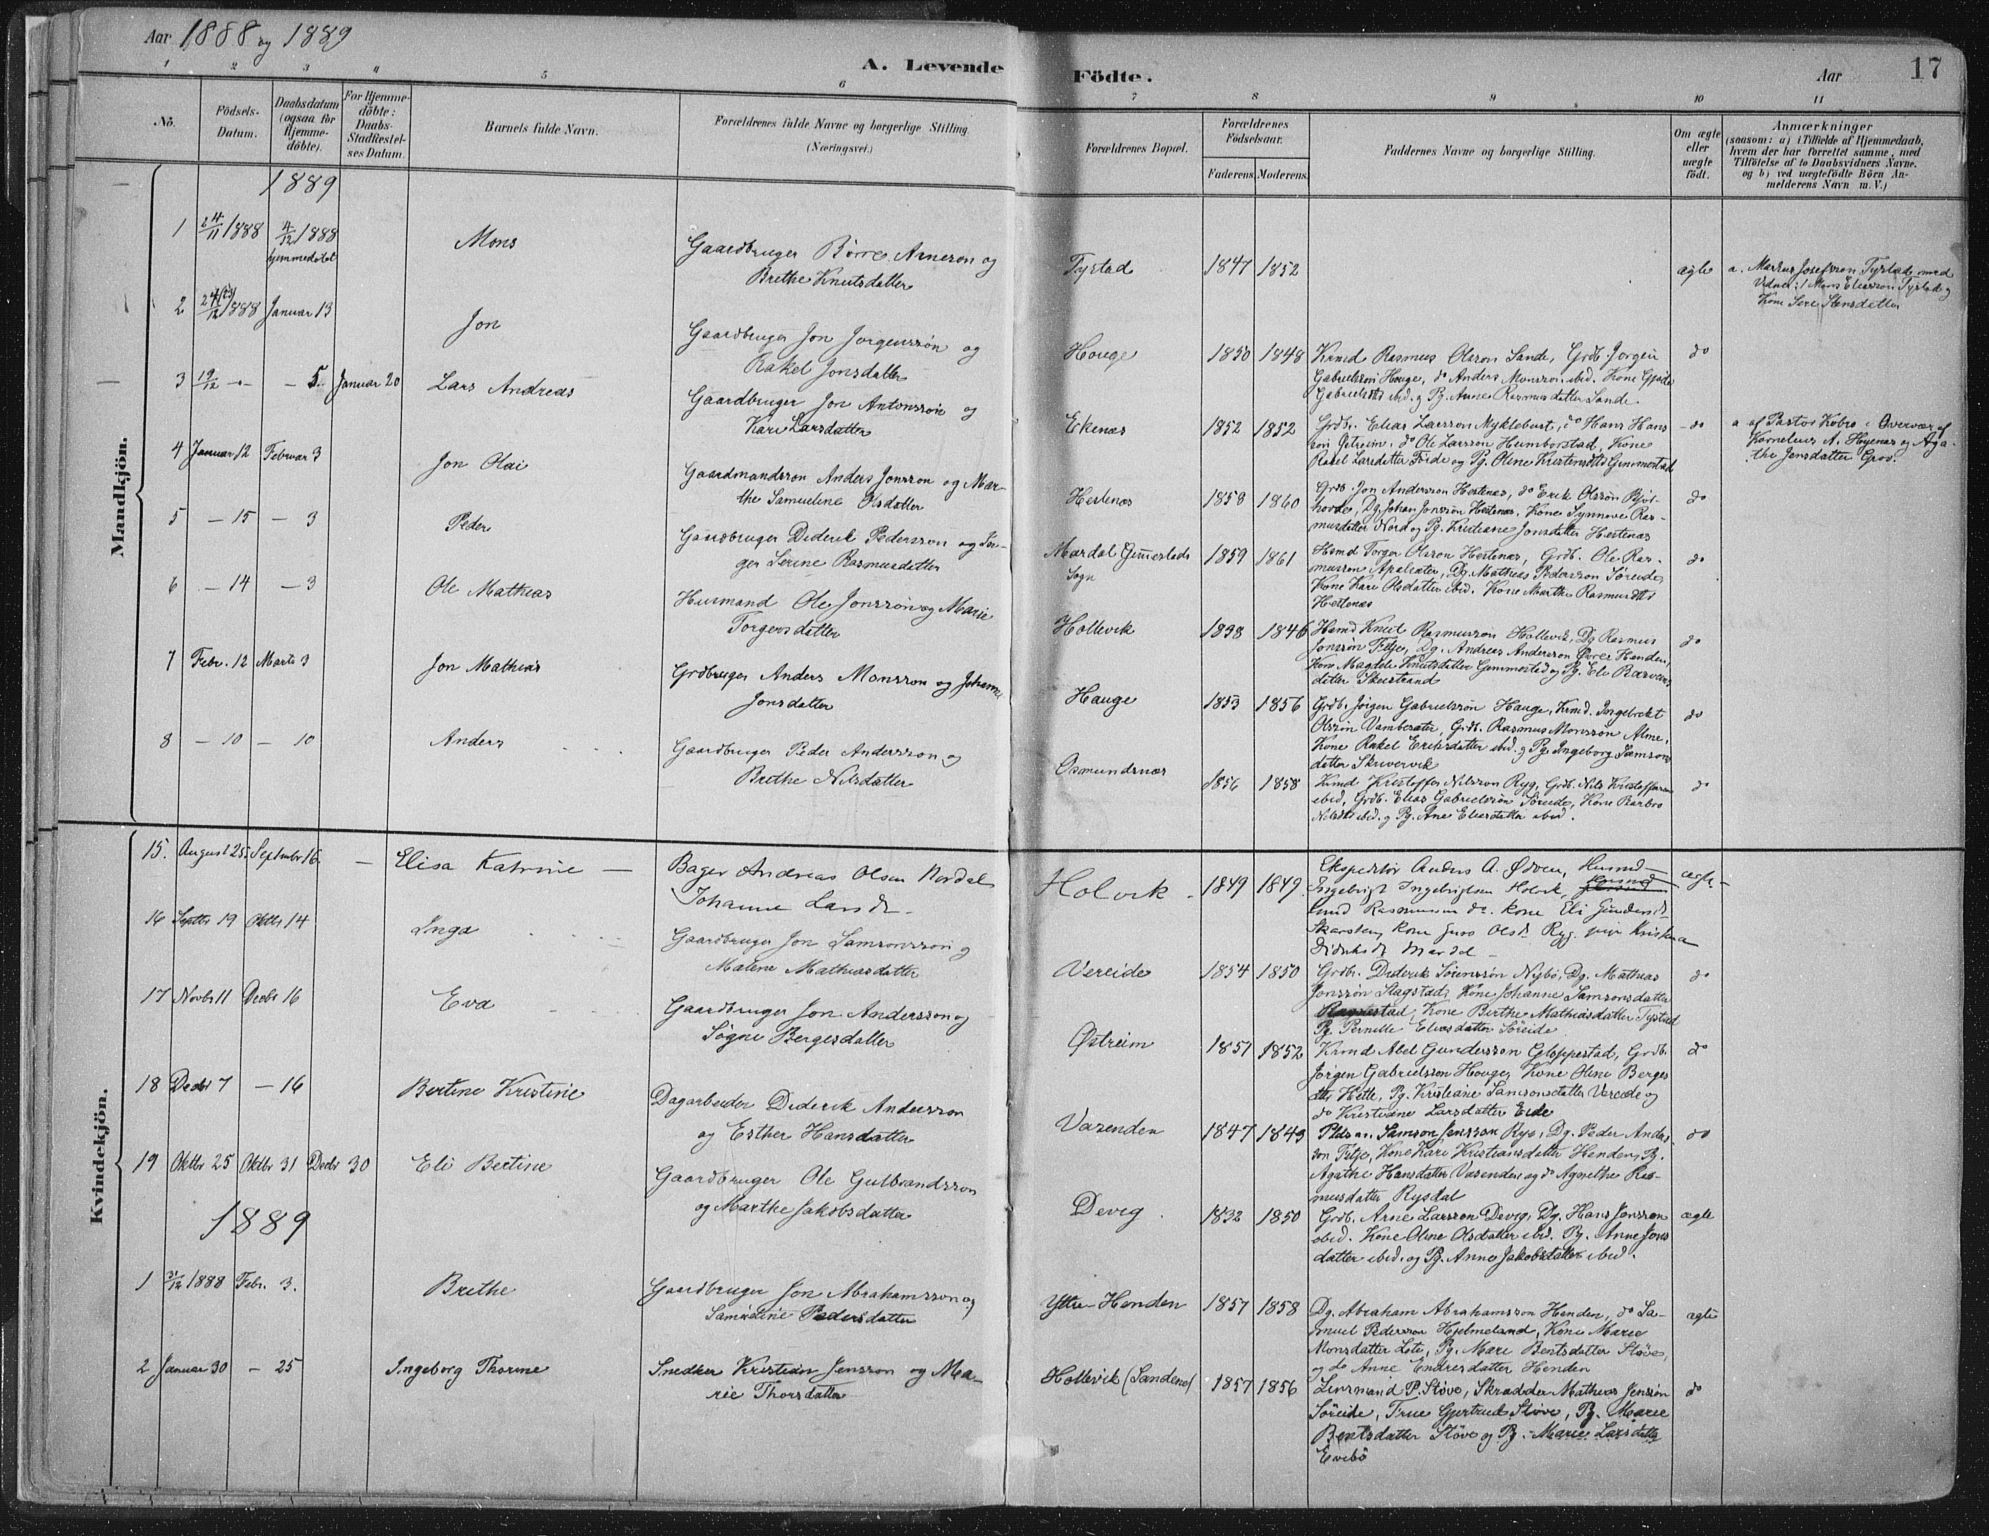 Aar 1888 og 1889
A. Levende Födte.
Aar
17
1 2 3 4 5 6 7 8 9 10 11
No.
Födsels-Datum.
Daabsdatum (ogsaa for Hjemme-döbte).
For Hjemme-döbte: Daabs-Stadfæstel-ses Datum.
Barnets fulde Navn.
Forældrenes fulde Navne og borgerlige Stilling. (Næringsvei.)
Forældrenes Bopæl.
Forældrenes Födselsaar.
Faderens. Moderens.
Faddernes Navne og borgerlige Stilling.
Om ægte eller uægte födt.
Anmærkninger
(saasom: a) i Tilfælde af Hjemmedaab, hvem der har forrettet samme, med Tilföielse af to Daabsvidners Navne. og b) ved uægtefödte Börn An-melderens Navn m. V.)
Mandkjön.
1889
1 24/11 1888 4/12 1888 hjemmedøbt Mons
Gaardbruger Börre Arneson og
Brethe Knutsdatter
Tystad 1847 1852 ægte
a. Markus Josefsson Tystad med
Vidner: Mons Eliasson Tystad og
Kone Sere Stensdatter
2 24/12 1888 Januar 13 Jon
Gaardbruger Jon Jorgenssön og
Rakel Jonsdatter
Houge 1850 1848 Krmd Rasmus Olsson Sande, Grdb. Jorgen do
Gabrielsson Houge, do Anders Monsson ibid. Kone Gjøde
Gabrielsdtr ibid. og Pg. Anne Rasmusdatter Sande.
3 19/12 – – 5. Januar 20 Lars Andreas
Gaardbruger Jon Antonssön og
Kari Larsdatter
Ekenæs 1852 1852 Grdb. Elias Larsson Myklebust, do Hans Hans- do
son, do Ole Larsson Humborstad, Kone
Rakel Larsdatter Eide og Pg. Oline Kristensdtr Gimmestad
a af Pastor Kobro i Overvær af
Kornelius A. Høyenæs og Aga-
the Jensdatter Grov.
4 Januar 12 Februar 3 Jon Olai
Gaardmandsson Anders Jonsson og Mar-
the Samueline Olsdatter
Hestenæs 1858 1860 Grdb. Jon Andersson Hestenæs, do Erik Olsson Bjor- do
hovde, Dg. Johan Jonsson Hestenæs, Kone Synneve Ras-
musdatter Nord og Pg. Kristiane Jonsdatter Hestenæs
5 – 15 – 3 Peder
Gaardbruger Diderik Pedersson og In-
ger Serine Rasmusdatter
Mardal Gimmestads Sogn 1859 1861 Hsmd Torger Olsson Hestenæs, Grdb. Ole Ras- do
musson Apalsæter, Dg. Mathias Pedersson Söreide,
Kone Kari Olsdatter ibid. Kone Marthe Rasmusdtr
Hestenæs
6 – 14 – 3 Ole Mathias
Husmand Ole Jonsson og Marie
Torgersdatter
Hollevik 1838 1846 Hsmd Knut Rasmusson Hollevik, Dg Rasmus do
Jonssön Fitje, Dg. Andreas Andersson Övre Henden,
Kone Magdele Knutsdatter Gimmestad og Pg. Eli Rasmus
datter Skeistrand
7 Febr. 12 Marts 3 Jon Mathias
Grdbruger Anders Monsson og Johanne
Jonsdatter
Hauge 1853 1856 Grdb. Jörgen Gabrielssön Hauge, Krmd. Ingebrekt do
Olssön Vambesæter, Grdb. Rasmus Monssön Alme,
Kone Rakel Eriksdatter ibid. og Pg. Ingeborg Samson
datter Skrivervik
8 – 10 – 10 Anders
Gaardbruger Peder Andersson og
Brethe Nilsdatter
Osmundsnæs 1856 1858 Krmd Kristoffer Nilsson Ryg, Grdb. Nils Kristofferson do
ibid, Grdb. Elias Gabrielssön Söreide, Kone Barbro
Nilsdtr ibid. og Pg. Ane Eliasdatter ibid.
Kvindekjön.
15. August 25. Septembr 16. – Elisa Katrine –
Bager Andreas Olsen Nordal
Johanne Larsdr –
Holvik. 1849 1849. Ekspeditör Anders A. Øvren, Husmd – ægte –
Engebrigt Ingebrigtsen Holvik,
Knud Rasmussen do. kone Eli Gundersd.
Skarsten, kone Olsdr Ryg, pige Kristina
Didriksdr Mardal –
16 Septbr 19 Oktbr 14 Inga
Gaardbruger Jon Samsonsson og
Malene Mathiasdatter
Vereide 1854 1850 Grdb. Diderik Sörenssön Nybö, Dg. Mathias do
Jonssön Stagstad, Kone Johanne Samsonsdatter
Kone Birthe Mathiasdatter Tystad
Pg. Pernille Eliasdatter Söreide.
17 Novbr 11 Decbr 16 Eva
Gaardbruger Jon Andersson og
Sögne Bergesdatter
Østreim 1857 1852 Krmd Abel Gundersson Gloppestad, Grdb. do
Jörgen Gabrielsson Houge, Kone Oline Berges
dtr Hette, Pg. Kristiane Samsonsdatter Vereide og
do Kristiane Larsdatter Eide
18 Decbr 7 – 16 Bertine Kristine
Dagarbeider Diderik Andersson
og Esther Hansdatter
Vasenden 1847 1849 Pldsm. Samson Jensson Rye, Dg. Peder Anders do
son Fitje, Kone Kari Kristiansdatter Henden, Pg.
Agathe Hansdatter Vasenden og do Agnethe Ras-
musdatter Rysdal
19 Oktbr 25 Oktbr 31 Decbr 30 Eli Bertine
Gaardbruger Ole Gulbrandsson
og Marthe Jakobsdatter
Devig 1832 1850 Grdb. Arne Larsson Devig, Dg. Hans Jonsson ægte
ibid. Kone Oline Olsdatter ibid. Pg. Anne Jons
datter ibid. og Pg. Anne Jakobsdatter ibid.
1889
1 31/12 1888 Febr. 3. Brethe
Gaardbruger Jon Abrahamsson og
Samueline Pedersdatter
Yttre Henden 1857 1858 Dg. Abraham Abrahamsson Henden, do Sa- ægte
muel Pedersson Hjelmeland, Kone Marie
Monsdatter Lote, Pg. Mari Bentsdatter Slöve,
og do Anne Endresdatter Henden
2 Januar 30 – 25 Ingeborg Thorine
Snedker Kristian Jensson og Ma-
rie Thorsdatter
Hollevik (Sandene) 1857 1856 Lensmand P. Slöve, Skrædder Mathias Jenssön do
Söreide, Frue Gjertrud Slöve, Pg. Marie
Bentsdatter Slöve og Pg. Marie Larsdatter
Evebö